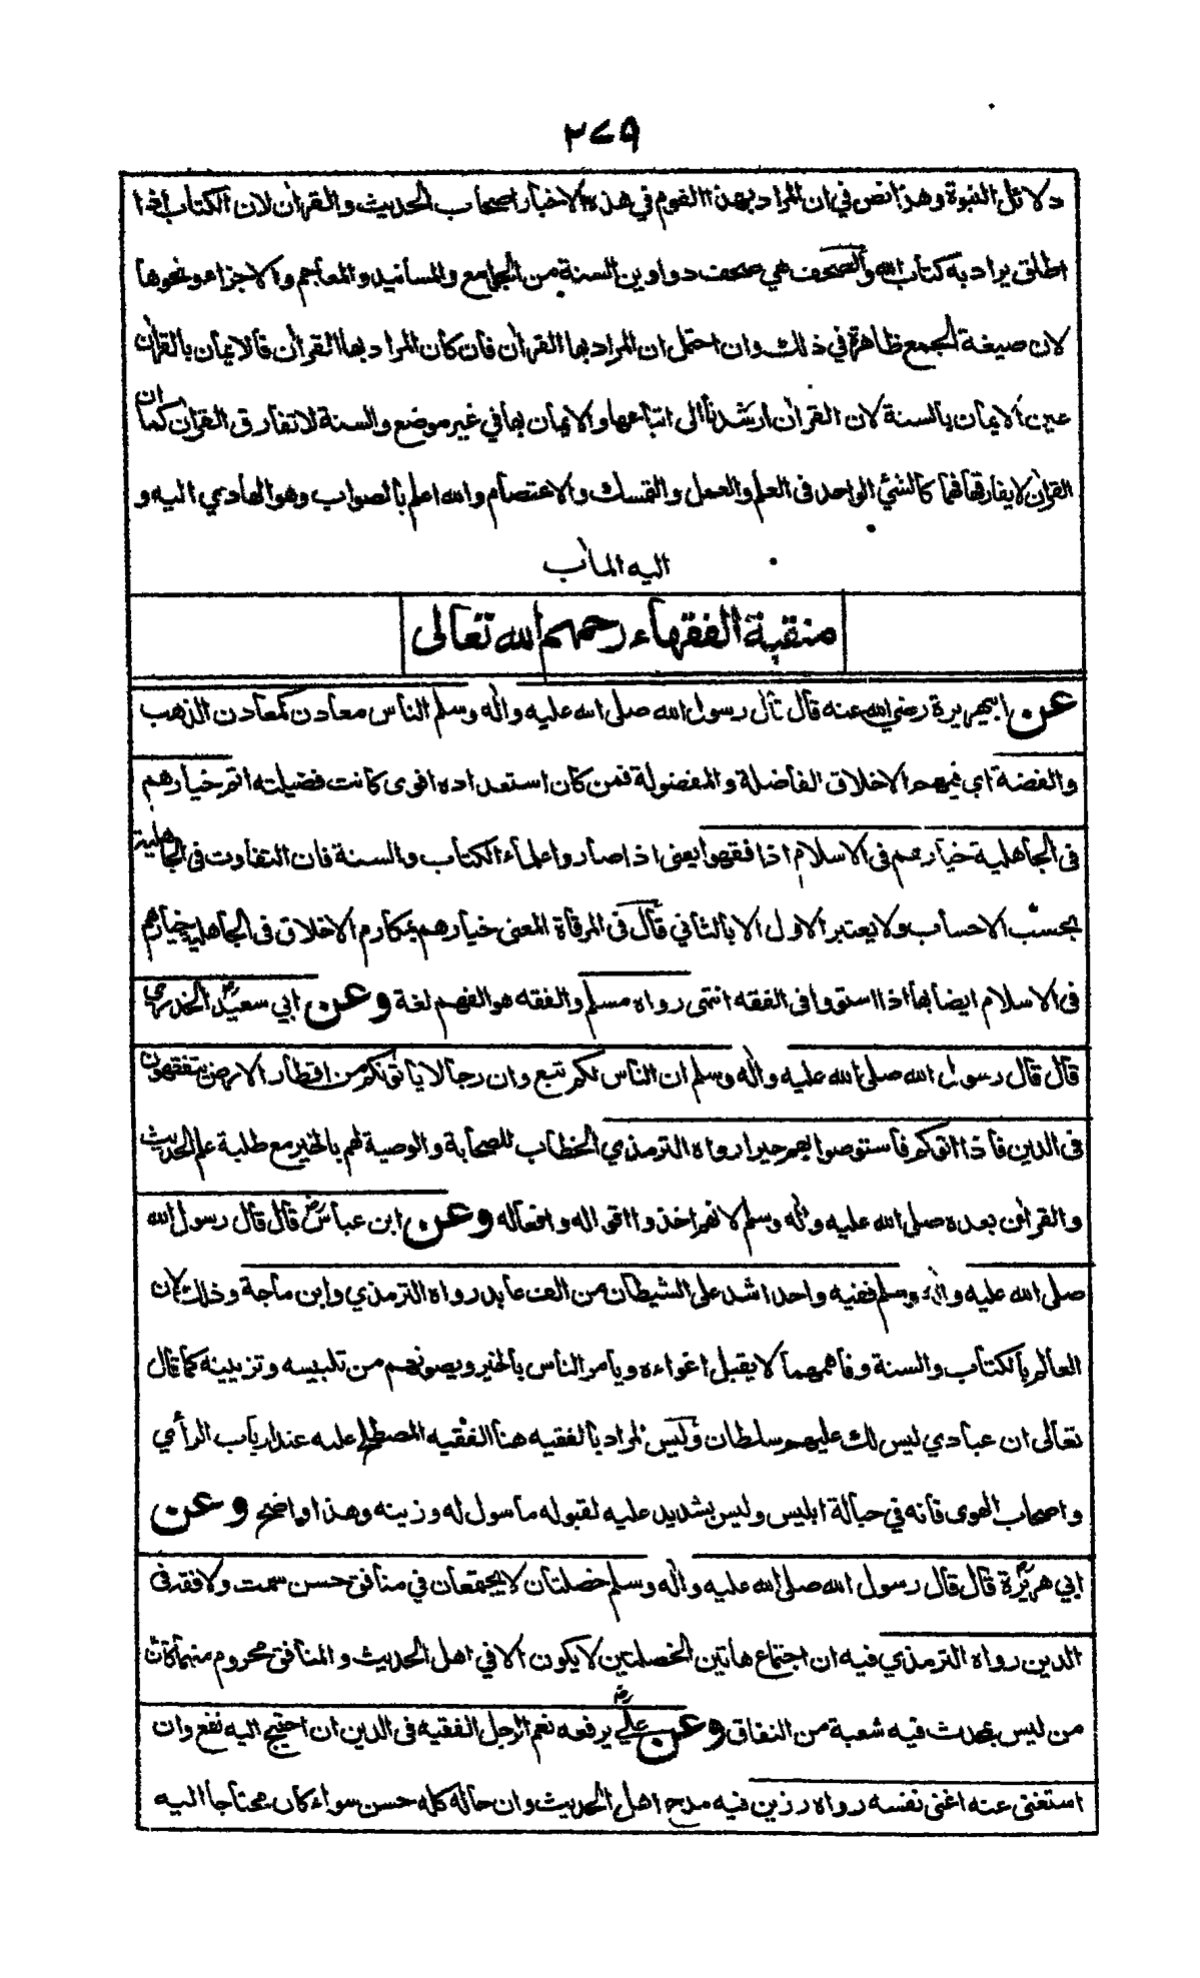 ٣٧٩
دلائل النبوة وهذا نص في ان المراد بهذا القوم في هذه الاخبار اصحاب الحديث والقرآن لان الكتاب اذا
اطلق يراد به كتاب الله والصحف هي صحف دواوين السنة من الجوامع والمسانيد والمعاجم والاجزاء ونحوها
لان صيغة الجمع ظاهرة في ذلك وان احتمل ان المراد بها القرآن فان كان المراد بها القرآن فالايمان بالقرآن
عين الايمان بالسنة لان القرآن ارشدنا الى اتباعها والايمان بها في غير موضع والسنة لا تفارق القرآن كما ان
القرآن لا يفارقها فهما كالشئ الواحد في العلم والعمل والتمسك والاعتصام والله اعلم بالصواب وهو الهادي اليه و
اليه المآب
منقبة الفقهاء رحمهم الله تعالى
عن ابيهريرة رضي الله عنه قال قال رسول الله صلى الله عليه وآله وسلم الناس معادن كمعادن الذهب
والفضة اي فيهم الاخلاق الفاضلة والمفضولة فمن كان استعداده اقوى كانت فضيلته اتم خيارهم
في الجاهلية خيارهم في الاسلام اذا فقهوا يعني اذا صاروا علماء الكتاب والسنة فان التفاوت في الجاهلية
بحسب الاحساب ولا يعتبر الاول الا بالثاني قال في المرقاة المعنى خيارهم بمكارم الاخلاق في الجاهلية خيارهم
في الاسلام ايضا بها اذا استووا في الفقه انتهى رواه مسلم والفقه هو الفهم لغة وعن ابي سعيد رض الخدري
قال قال رسول الله صلى الله عليه وآله وسلم ان الناس لكم تبع وان رجالا يأتونكم من اقطار الارض يتفقهون
في الدين فاذا اتوكم فاستوصوا بهم خيرا رواه الترمذي الخطاب للصحابة والوصية لهم بالخير مع طلبة علم الحديث
والقرآن بعده صلى الله عليه وآله وسلم لانهم اخذوا اقواله وافعاله وعن ابن عباس رض قال قال رسول الله
صلى الله عليه وآله وسلم فقيه واحد اشد على الشيطان من الف عابد رواه الترمذي وابن ماجة وذلك لان
العالم بالكتاب والسنة وفاهمهما لا يقبل اغواءه ويأمر الناس بالخير ويصونهم من تلبيسه وتزيينه كما قال
تعالى ان عبادي ليس لك عليهم سلطان وليس المراد بالفقيه هنا الفقيه المصطلح عليه عند ارباب الرأي
واصحاب الهوى فانه في حبالة ابليس وليس بشديد عليه لقبوله ما سول له وزينه وهذا واضح وعن
ابي هريرة رض قال قال رسول الله صلى الله عليه وآله وسلم خصلتان لا يجتمعان في منافق حسن سمت ولا فقه في
الدين رواه الترمذي فيه ان اجتماع هاتين الخصلتين لا يكون الا في اهل الحديث والمنافق محروم منهما
من ليس بمحدث فيه شعبة من النفاق وعن علي رض يرفعه نعم الرجل الفقيه في الدين ان احتيج اليه نفع وان
استغني عنه اغنى نفسه رواه رزين فيه مدح اهل الحديث وان حاله كله حسن سواء كان محتاجا اليه